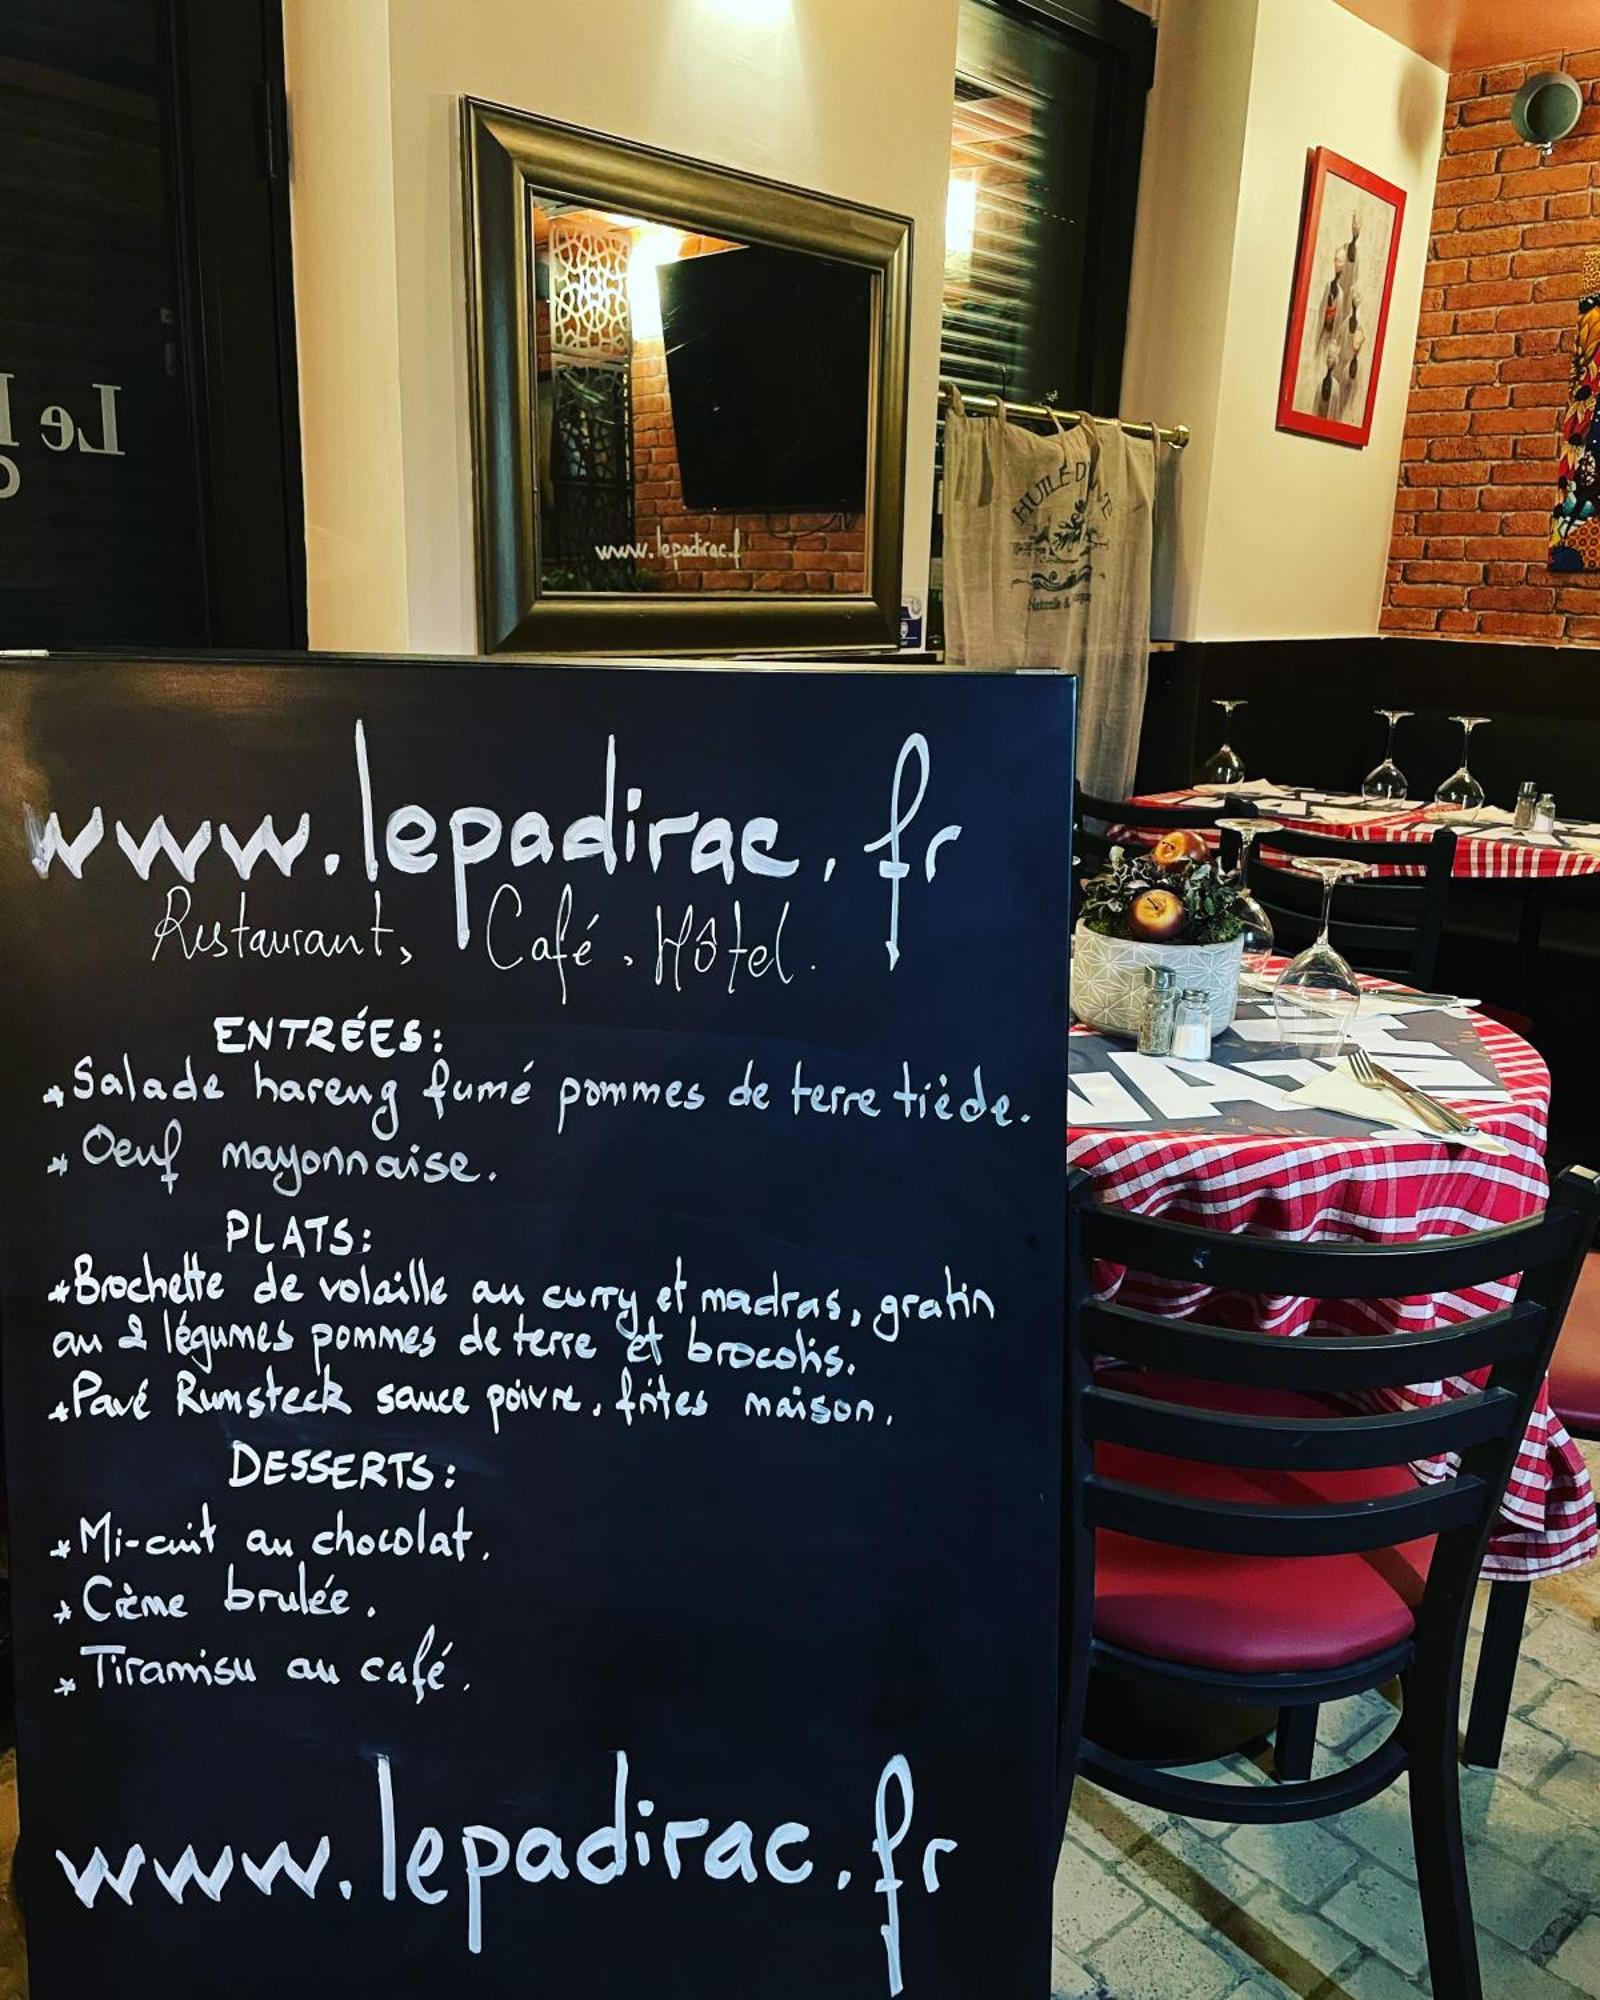 Le
www.lepadirac.f
HUILE D'
Naturelle &
www.lepadirac.fr
Restaurant, Café, Hôtel.
ENTRÉES:
*Salade hareng fumé pommes de terre tiède.
* Oeuf mayonnaise.
PLATS:
*Brochette de volaille au curry et madras, gratin
au 2 légumes pommes de terre et brocolis.
*Pavé Rumsteck sauce poivre, frites maison.
DESSERTS:
*Mi-cuit au chocolat.
*Crème brulée.
*Tiramisu au café.
www.lepadirac.fr